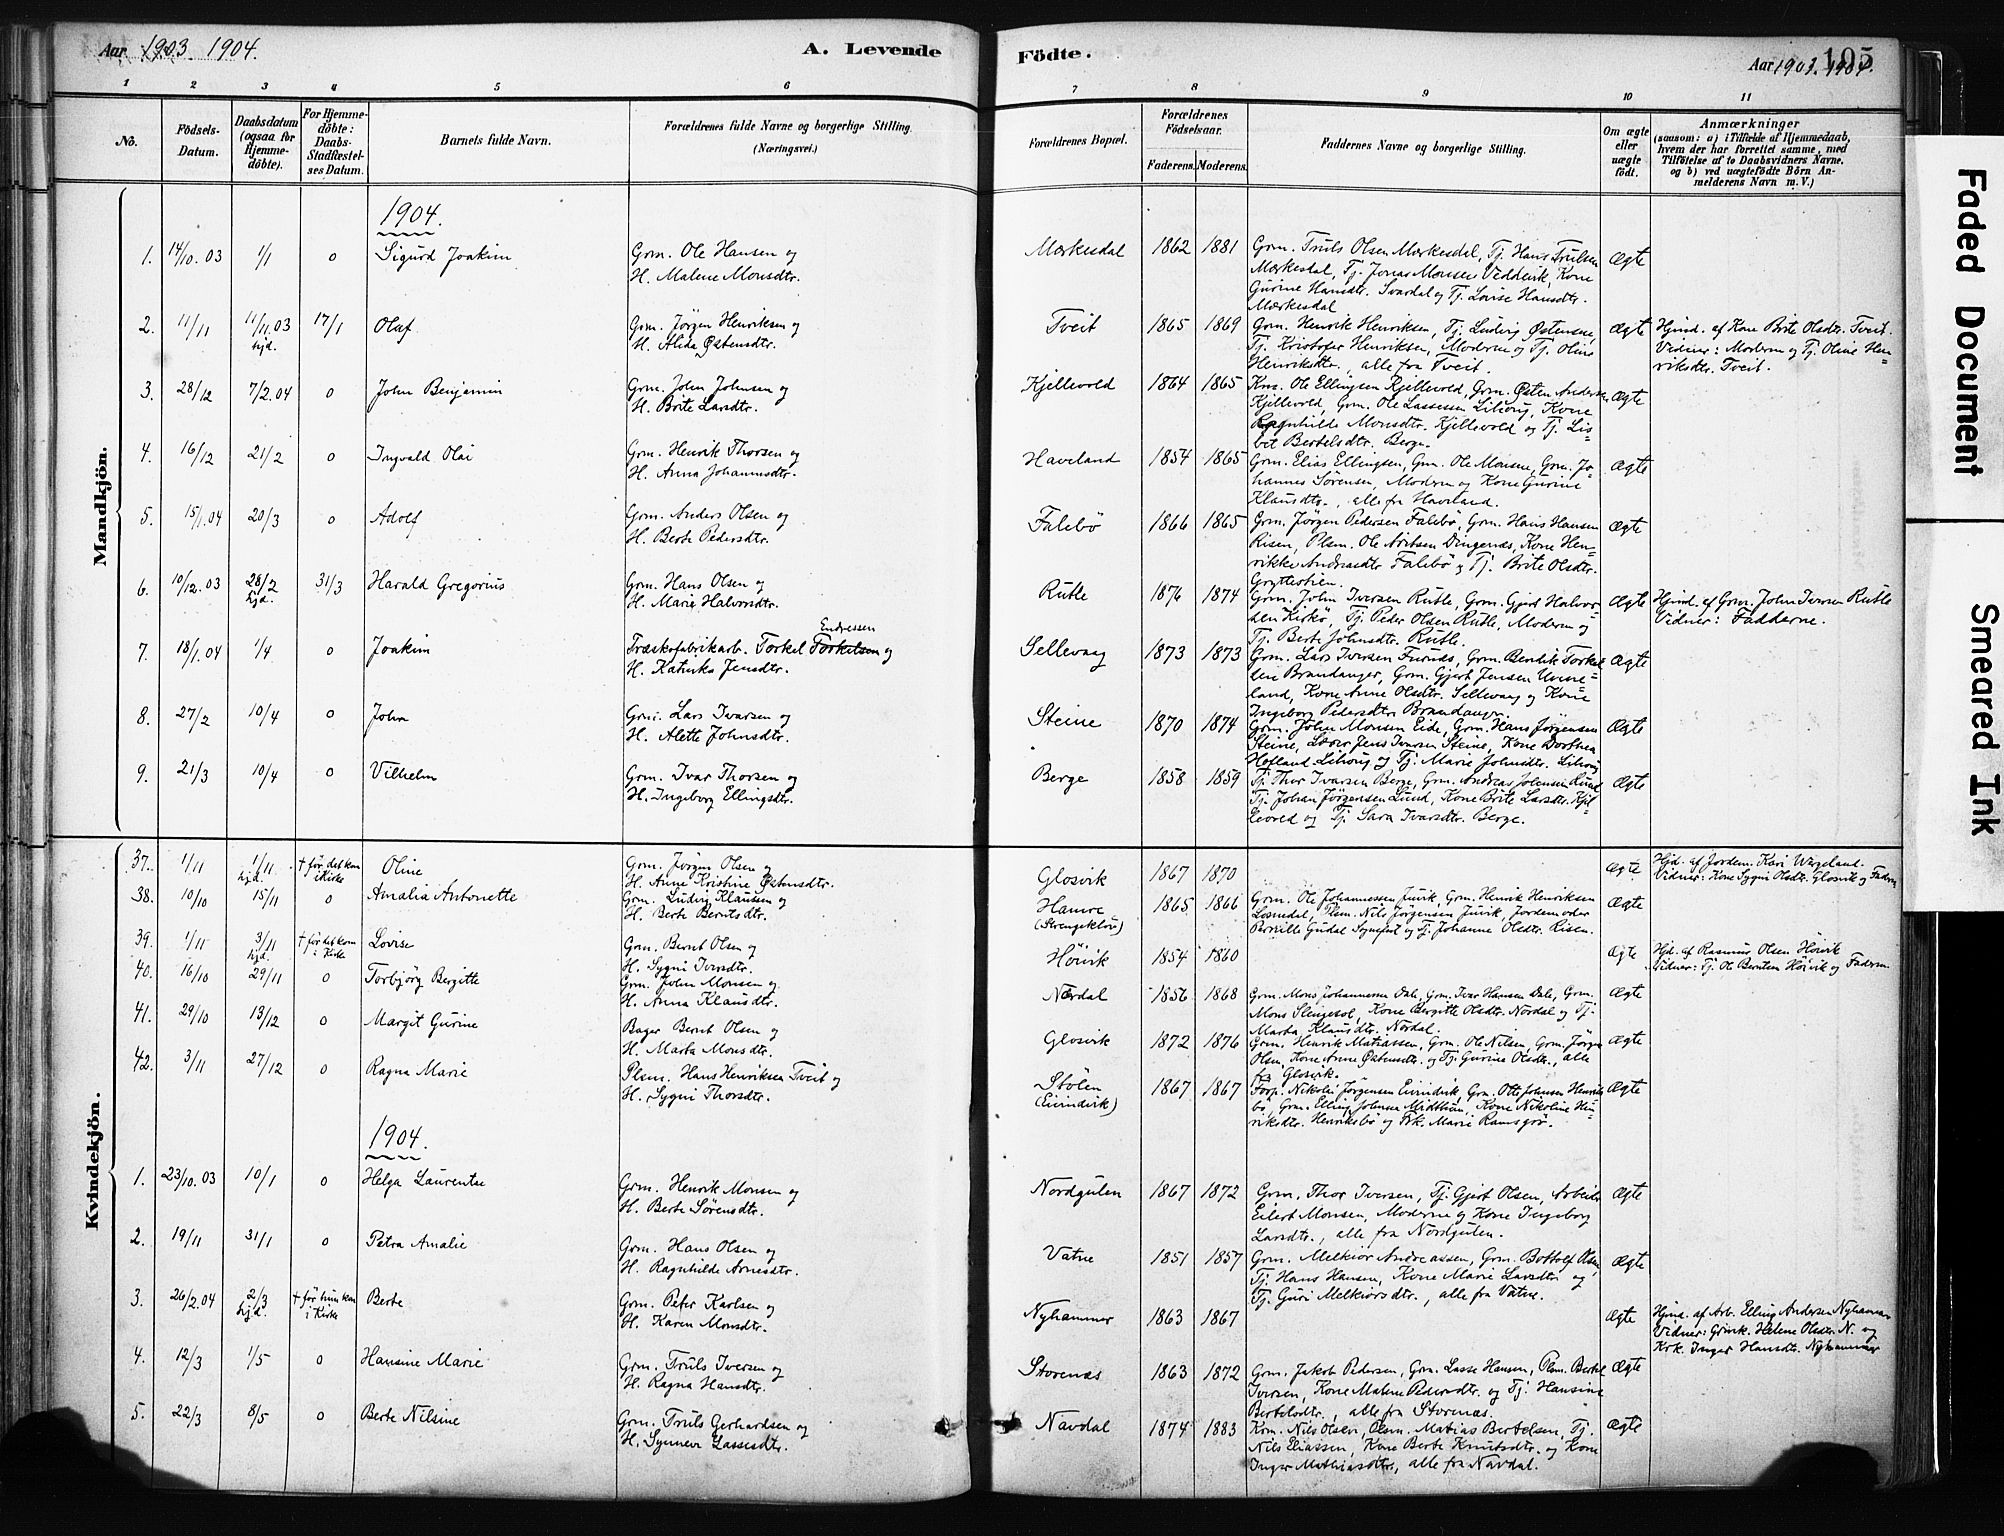 Aar 1903. 1904.
A. Levende Födte.
Aar 1903. 1904.
105
1 2 3 4 5 6 7 8 9 10 11
No.
Födsels-Datum.
Daabsdatum (ogsaa for Hjemme-döbte).
For Hjemme-döbte: Daabs-Stadfæstel-ses Datum.
Barnets fulde Navn.
Forældrenes fulde Navne og borgerlige Stilling.
(Næringsvei.)
Forældrenes Bopæl.
Forældrenes Födselsaar.
Faderens. Moderens.
Faddernes Navne og borgerlige Stilling.
Om ægte eller uægte födt.
Anmærkninger
(saasom: a) i Tilfælde af Hjemmedaab,
hvem der har forrettet samme, med
Tilföielse af to Daabsvidners Navne,
og b) ved uægtefödte Börn An-
melderens Navn m. V.)
Mandkjön.
1904.
1. 14/10. 03 1/1 0 Sigurd Joakim
Grm. Ole Hansen og
H. Malene Monsdtr.
Mærkesdal 1862 1881
Grm. Truls Olsen Mærkesdal, Tj. Hans Trulsen
Mærkesdal, Tj. Jonas Monsen Viddevik, Kone
Gurine Hansdtr. Svardal og Tj. Lovise Hansdtr.
Mærkesdal
Ægte
2. 11/11 11/11.03 hjd. 17/1 Olaf
Grm. Jörgen Henriksen og
H. Alida Østensdtr.
Tveit 1865 1869
Grm. Henrik Henriksen, Tj. Ludvig Østensen,
Tj. Kristofer Henriksen, Moderen og Tj. Oline
Henriksdtr., alle fra Tveit.
Ægte
Hjmd. af Kone Brite Olsdtr. Tveit.
Vidner: Moderen og Tj. Oline Hen-
riksdtr. Tveit.
3. 28/12 7/2.04 0 John Benjamin
Grm. John Johnsen og
H. Brite Larsdtr.
Kjellevold 1864 1865
Km. Ole Ellingsen Kjellevold, Grm. Østen Andersen
Kjellevold, Grm. Ole Lassesen Lihoug, Kone
Ragnhilde Monsdtr. Kjellevold og Tj. Lis-
bet Bertelsdtr. Berge.
Ægte
4. 16/12 21/2 0 Ingvald Olai
Grm. Henrik Thorsen og
H. Anna Johannesdtr.
Haveland 1854 1865
Grm. Elias Ellingsen, Grm. Ole Monsen, Grm. Jo-
hannes Sörensen, Moderen og Kone Gurine
Klausdtr., alle fra Haveland.
Ægte
5. 15/1.04 20/3 0 Adolf
Grm. Anders Olsen og
H. Berte Pedersdtr.
Falebö 1866 1865
Grm. Jörgen Pedersen Falebö, Grm. Hans Hansen
Risen, Plsm. Ole Dingenæs, Kone Hen-
rikke Andreasdtr Falebö og Tj. Brite Olsdtr.
Ægte
6. 10/12.03 28/2 hjd. 31/3 Harald Gregorius
Grm. Hans Olsen og
H. Marie Halvorsdtr.
Rutle 1876 1874
Grm. John Iversen Rutle, Grm. Gjert Halvor-
sen Kirkö, Tj. Peder Olsen Rutle, Moderen og
Tj. Berte Johnsdtr. Rutle.
Ægte
Hjmd. af Grm. John Iversen Rutle
Vidner: Fadderne.
7. 18/1.04 1/4 0 Joakim
Endressen
Træskofabrikarb. Torkel Torkelsen og
H. Katinka Jensdtr.
Sellevaag 1873 1873
Grm. Lars Iversen Furenæs, Grm. Bendik Torkel
sen Brandanger, Grm. Gjert Jensen
land, Kone Anne Olsdtr. Sellevaag og Kone
Ingeborg Pedersdtr. Brandanger.
Ægte
8. 27/2 10/4 0 John
Grm. Lars Ivarsen og
H. Alette Johnsdtr.
Steine 1870 1874
Grm. John Monsen Eide, Grm. Hans Jörgensen
Steine, Lærer Jens Ivarsen Steine, Kone Dorthea
Hofland Lihoug og Tj. Marie Johnsdtr. Lihoug
Ægte
9. 21/3 10/4 0 Vilhelm
Grm. Ivar Thorsen og
H. Ingeborg Ellingsdtr.
Berge 1858 1859
Tj. Thor Ivarsen Berge, Grm. Andreas Johnsen Lund
Tj. Johan Jörgensen Lund, Kone Brite Larsdtr. Kjel-
levold og Tj. Sara Ivarsdtr. Berge.
Ægte
Kvindekjön.
37. 1/11 1/11 hjd. † för det kom i Kirke Oline
Grm. Jörgen Olsen og
H. Anne Kristine Østensdtr.
Glosvik 1867 1870
Ægte
Hjd. af Jordem. Kari Wægeland.
Vidner: Kone Sygni Olsdtr. Glosvik og Faderen
38. 10/10 15/11 0 Amalia Antonette
Grm. Ludvig Klausen og
H. Berte Berntsdtr.
Hamre 1865 1866
Grm. Ole Johannessen Juvik, Grm. Henrik Henriksen
Losnedal, Plsm. Nils Jörgensen Juvik, Jordemoder
Gudal Synefest og Tj. Johanne Olsdtr. Risen.
Ægte
39. 1/11 3/11 hjd. † för det kom i Kirke Lovise
Grm. Bernt Olsen og
H. Sygni Iversdtr.
Höivik 1854 1860
Ægte
Hjd. af Rasmus Olsen Höivik
Vidner: Tj. Ole Berntsen Höivik og Faderen
40. 16/10 29/11 0 Torbjörg Bergitte
Grm. John Monsen og
H. Anna Klausdtr.
Nordal 1856 1868
Grm. Mons Johannessen Dale, Grm. Ivar Hansen Dale, Grm.
Mons Slengesol, Kone Bergitte Olsdtr. Nordal og Tj.
Marta Klausdtr. Nordal.
Ægte
41. 29/10 13/12 0 Margit Gurine
Bager Bernt Olsen og
H. Marta Monsdtr.
Glosvik 1872 1876
Grm. Henrik Matiassen, Grm. Ole Nilsen, Grm. Jörgen
Olsen, Kone Anne Østensdtr. og Tj. Gurine Olsdtr., alle
fra Glosvik.
Ægte
42. 3/11 27/12 0 Ragna Marie
Plsm. Hans Henriksen Tveit og
H. Sygni Thorsdtr.
Stölen
(Eivindvik) 1867 1867
Forp. Nikolai Jörgensen Eivindvik, Grm. Ole Johnsen Henriks
bö, Grm. Elling Johnsen Midthun, Kone Nikoline Hen-
riksdtr. Henriksbö og Frk. Marie Ramsgrö.
Ægte
1904.
1. 23/10.03 10/1 0 Helga Laurentse
Grm. Henrik Monsen og
H. Berte Sörensdtr.
Nordgulen 1867 1872
Grm. Thor Iversen, Tj. Gjert Olsen, Arbeider
Eilert Monsen, Moderen og Kone Ingeborg
Larsdtr., alle fra Nordgulen.
Ægte
2. 19/11 31/1 0 Petra Amalie
Grm. Hans Olsen og
H. Ragnhilde Arnesdtr.
Vatne 1851 1857
Grm. Melkior Andreassen, Grm. Bottolf Olsen,
Tj. Hans Hansen, Kone Marie Larsdtr og
Tj. Guri Melkiorsdtr., alle fra Vatne.
Ægte
3. 26/2.04 2/3 hjd. † för hun kom i Kirke Berte
Grm. Peter Karlsen og
H. Karen Monsdtr.
Nyhammer 1863 1867
Ægte
Hjmd. af Arb. Elling Andersen Nyhammer
Vidner: Grmk. Helene Olsdtr. N. og
Krk. Inger Hansdtr. Nyhammer
4. 12/3 1/5 0 Hansine Marie
Grm. Truls Iversen og
H. Ragna Hansdtr.
Storenæs 1863 1872
Grm. Jakob Pedersen, Grm. Lasse Hansen, Plsm. Bertel
Iversen, Kone Malene Pedersdtr. og Tj. Hansine
Bertelsdtr., alle fra Storenæs.
Ægte
5. 22/3 8/5 0 Berte Nilsine
Grm. Truls Gerhardsen og
H. Synneve Lassesdtr.
Navdal 1874 1883
Km. Nils Olsen, Plsm. Matias Bertelsen, Tj.
Nils Eliassen, Kone Berte Knutsdtr. og Kone
Inger Mathiasdtr., alle fra Navdal.
Ægte
Faded Document
Smeared Ink